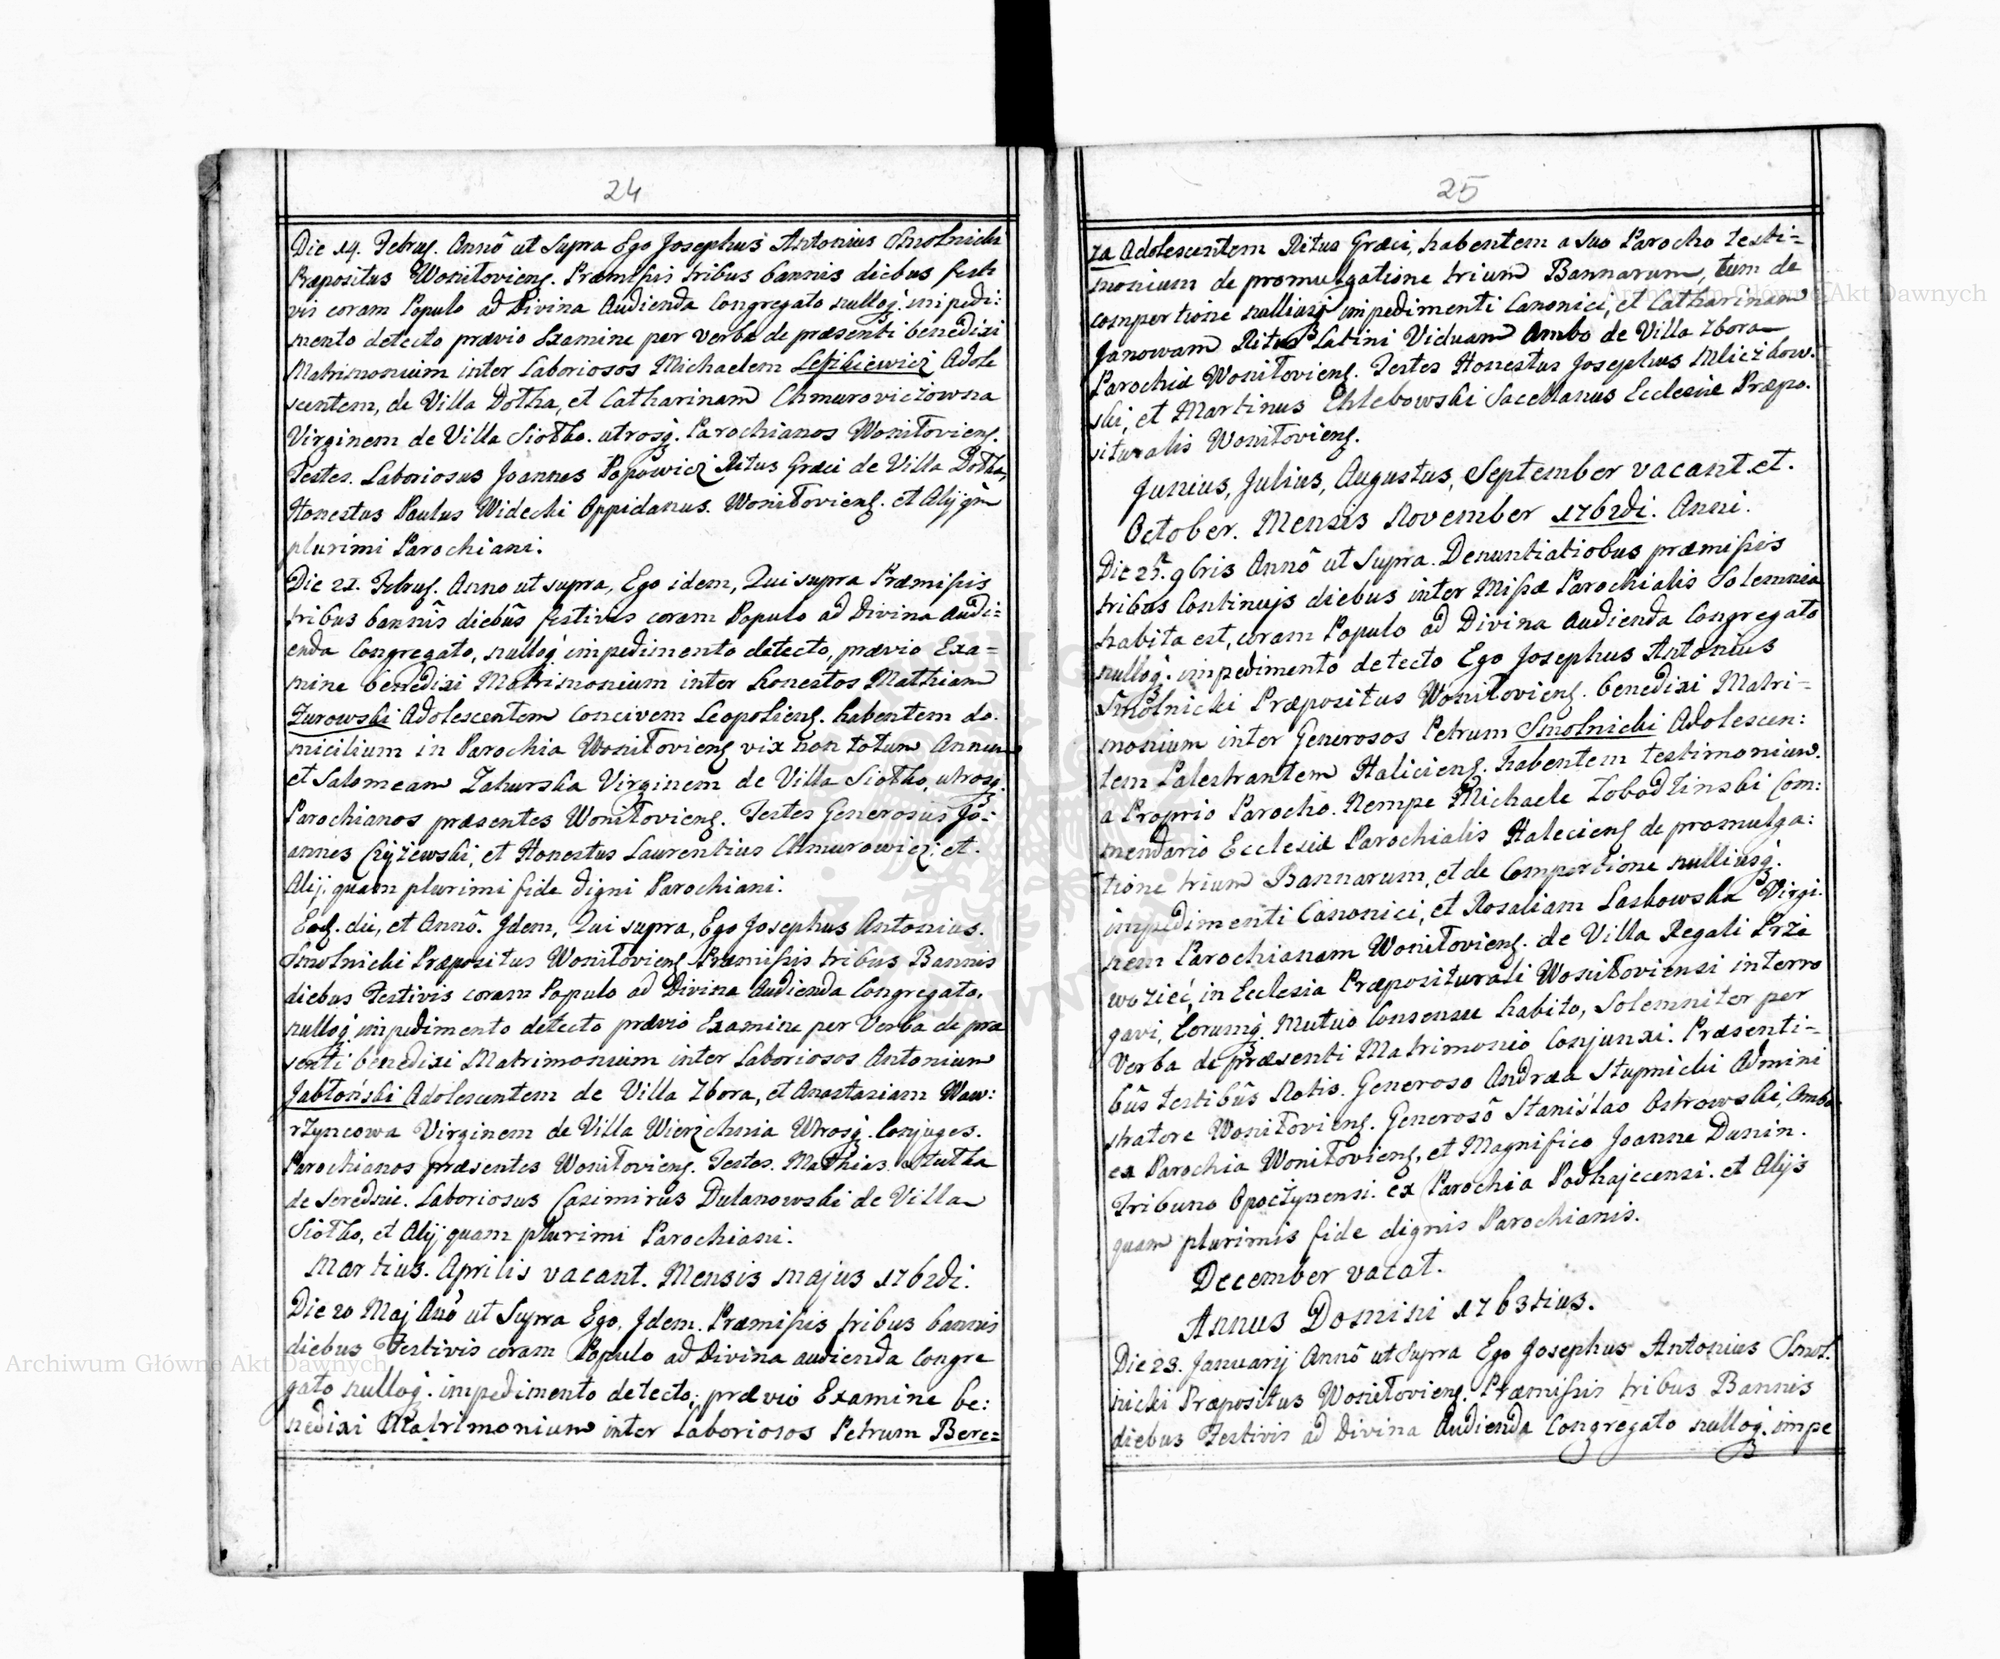 24
Die 14. Febru. Annô ut Supra Ego Josephus Antonius Smolnicki
Præpositus Woniłovien. Præmissis tribus bannis diebus festi
vis coram Populo ad Divina Audienda Congregato nulloq. impedi:
mento detecto prævio Examine per verba de præsenti benedixi
Matrimonium inter Laboriosos Michaelem Adole
scentem, de Villa Dołha, et Catharinam Chmurovicżowna
Virginem de Villa Siołko. utrosq. Parochianos Woniłovien.
Testes. Laboriosus Joannes Popowicz Ritus Græci de Villa Dołha,
Honestus Paulus Widecki Oppidanus. Woniłovien. et Alij qm
plurimi Parochiani.
Die 21. Febru. Anno ut supra, Ego idem, Qui supra Præmissis
tribus bannîs diebûs festivis coram Populo ad Divina Audi=
enda Congregato, nulloq. impedimento detecto, prævio Exa=
mine benedixi Matrimonium inter honestos Mathiam
Żurowski Adolescentem Concivem Leopolien. habentem do.
micilium in Parochia Woniłovien vix non totum Annum
et Salomeam Zahurska Virginem de Villa Siołko, utrosq.
Parochianos præsentes Woniłovien. Testes Generosus Jo=
annes Czyżewski, et Honestus Laurentius Chmurowicz, et.
Alij, quam plurimi fide digni Parochiani.
Eod. die, et Annô. Idem, Qui supra, Ego Josephus Antonius.
Smolnicki Præpositus Woniłovien Præmissis tribus Bannis
diebus Festivis coram Populo ad Divina Audienda Congregato,
nulloq. impedimento detecto prævio Examine per Verba de præ
senti benedixi Matrimonium inter Laboriosos Antonium
Jabłoński Adolescentem de Villa Zbora, et Anastasiam Waw:
rżyncowa Virginem de Villa Wierzchnia Utrosq. Conjuges.
Parochianos præsentes Woniłovien. Testes. Mathias.
de Serednie. Laboriosus Casimirus Dulanowski de Villa
Siołko, et Alij quam plurimi Parochiani.
Martius. Aprilis vacant. Mensis Majus 1762di.
Die 20 Maj Anô ut Supra Ego. Idem. Præmissis tribus bannis
diebus Festivis coram Populo ad Divina audienda Congre
gato nulloq. impedimento detecto, prævio Examine be:
nedixi Matrimonium inter Laboriosos Petrum Bere=
25
za Adolescentem Ritus Græci, habentem a suo Parocho testi=
monium de promulgatione trium Bannarum, tum de
compertione nulliusq impedimenti Canonici, et Catharinam
Janowam Ritus Latini Viduam Ambo de Villa Zbora
Parochiæ Woniłovien. Testes Honestus Josephus Mliczkow.
ski, et Martinus Chlebowski Sacellanus Ecclesiæ Præpo.
situralis Woniłovien.
Junius, Julius, Augustus, September vacant. et.
October. Mensis November 1762di. Anni.
Die 9bris Annô ut Supra. Denuntiatiobus præmissis
tribus Continujs diebus inter Missæ Parochialis Solemnia
habita est, coram Populo ad Divina Audienda Congregato
nulloq. impedimento detecto Ego Josephus Antonius
Smolnicki Præpositus Woniłovien. benedixi Matri=
monium inter Generosos Petrum Smolnicki Adolescen:
tem Palestrantem Halicien. habentem testimonium.
a Proprio Parocho. Nempe Michaele Łobodżinski Com:
mendario Ecclesiæ Parochialis Halecien de promulga:
tione trium Bannarum, et de Compertione nulliusq.
impedimenti Canonici, et Rosaliam Laskowska Virgi.
nem Parochianam Woniłovien. de Villa Regali Prże
wozieć, in Ecclesia Præposituralj Woniłoviensi interro
gavi, Eorumq. Mutuo Consensu habito, Solemniter per
Verba de præsenti Matrimonio Conjunxi. Præsenti=
bûs testibûs Notis. Generoso Andræa Stupnicki Admini
stratore Woniłovien. Generosô Stanislao Ostrowski, Ambo
ex Parochia Woniłovien, et Magnifico Joanne Dunin.
Tribuno Opoczynensi. ex Parochia Podhajecensi. et Alijs
quam plurimis fide dignis Parochianis.
December vacat.
Annus Domini 1763tius.
Die 23. Januarij Annô ut Supra Ego Josephus Antonius Smol.
nicki Præpositus Woniłovien. Præmissis tribus Bannis
diebus Festivis ad Divina Audienda Congregato nulloq. impe
Archiwum Główne Akt Dawnych
Archiwum Główne Akt Dawnych